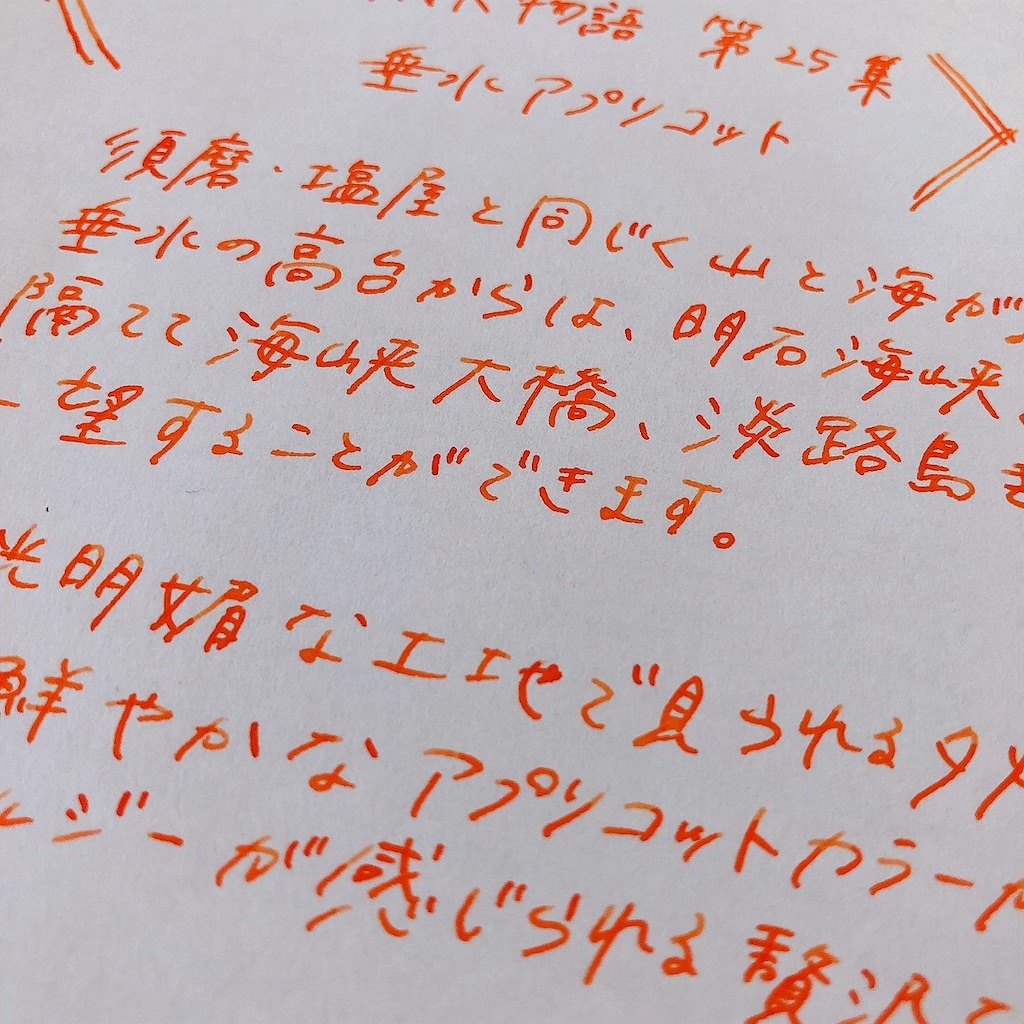 物語 第25集
垂水アプリコット
須磨・塩屋と同じく山と海が
垂水の高台からは、明石海峡
隔てて海峡大橋、淡路島
一望することができます。
光明媚な土地で見られる夕
鮮やかなアプリコットカラー
ルジーが感じられる贅沢